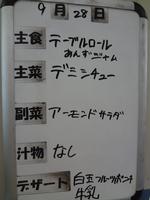 9月28日
主食 テーブルロール
あんずジャム
主菜 デミシチュー
副菜 アーモンドサラダ
汁物 なし
デザート 白玉フルーツポンチ
牛乳